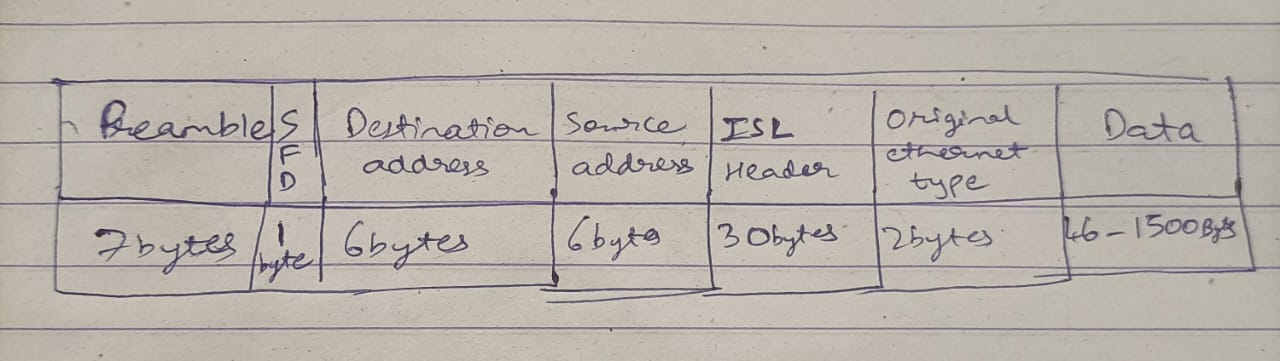 Preamble
SFD
Destination
address
Source
address
ISL
Header
Original
ethernet
type
Data
7bytes
1
byte
6bytes
6byte
30bytes
2bytes
46-1500Bytes